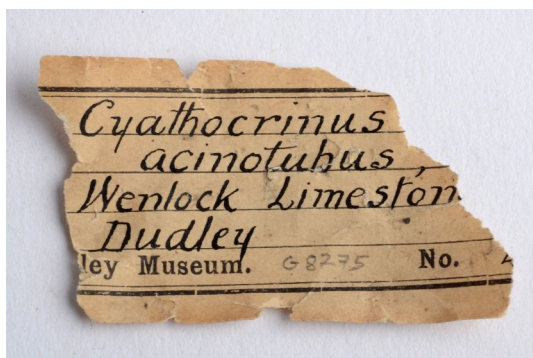 Cyathocrinus
acinotubus,
Wenlock Limeston
Dudley
ley Museum. G8275 No.